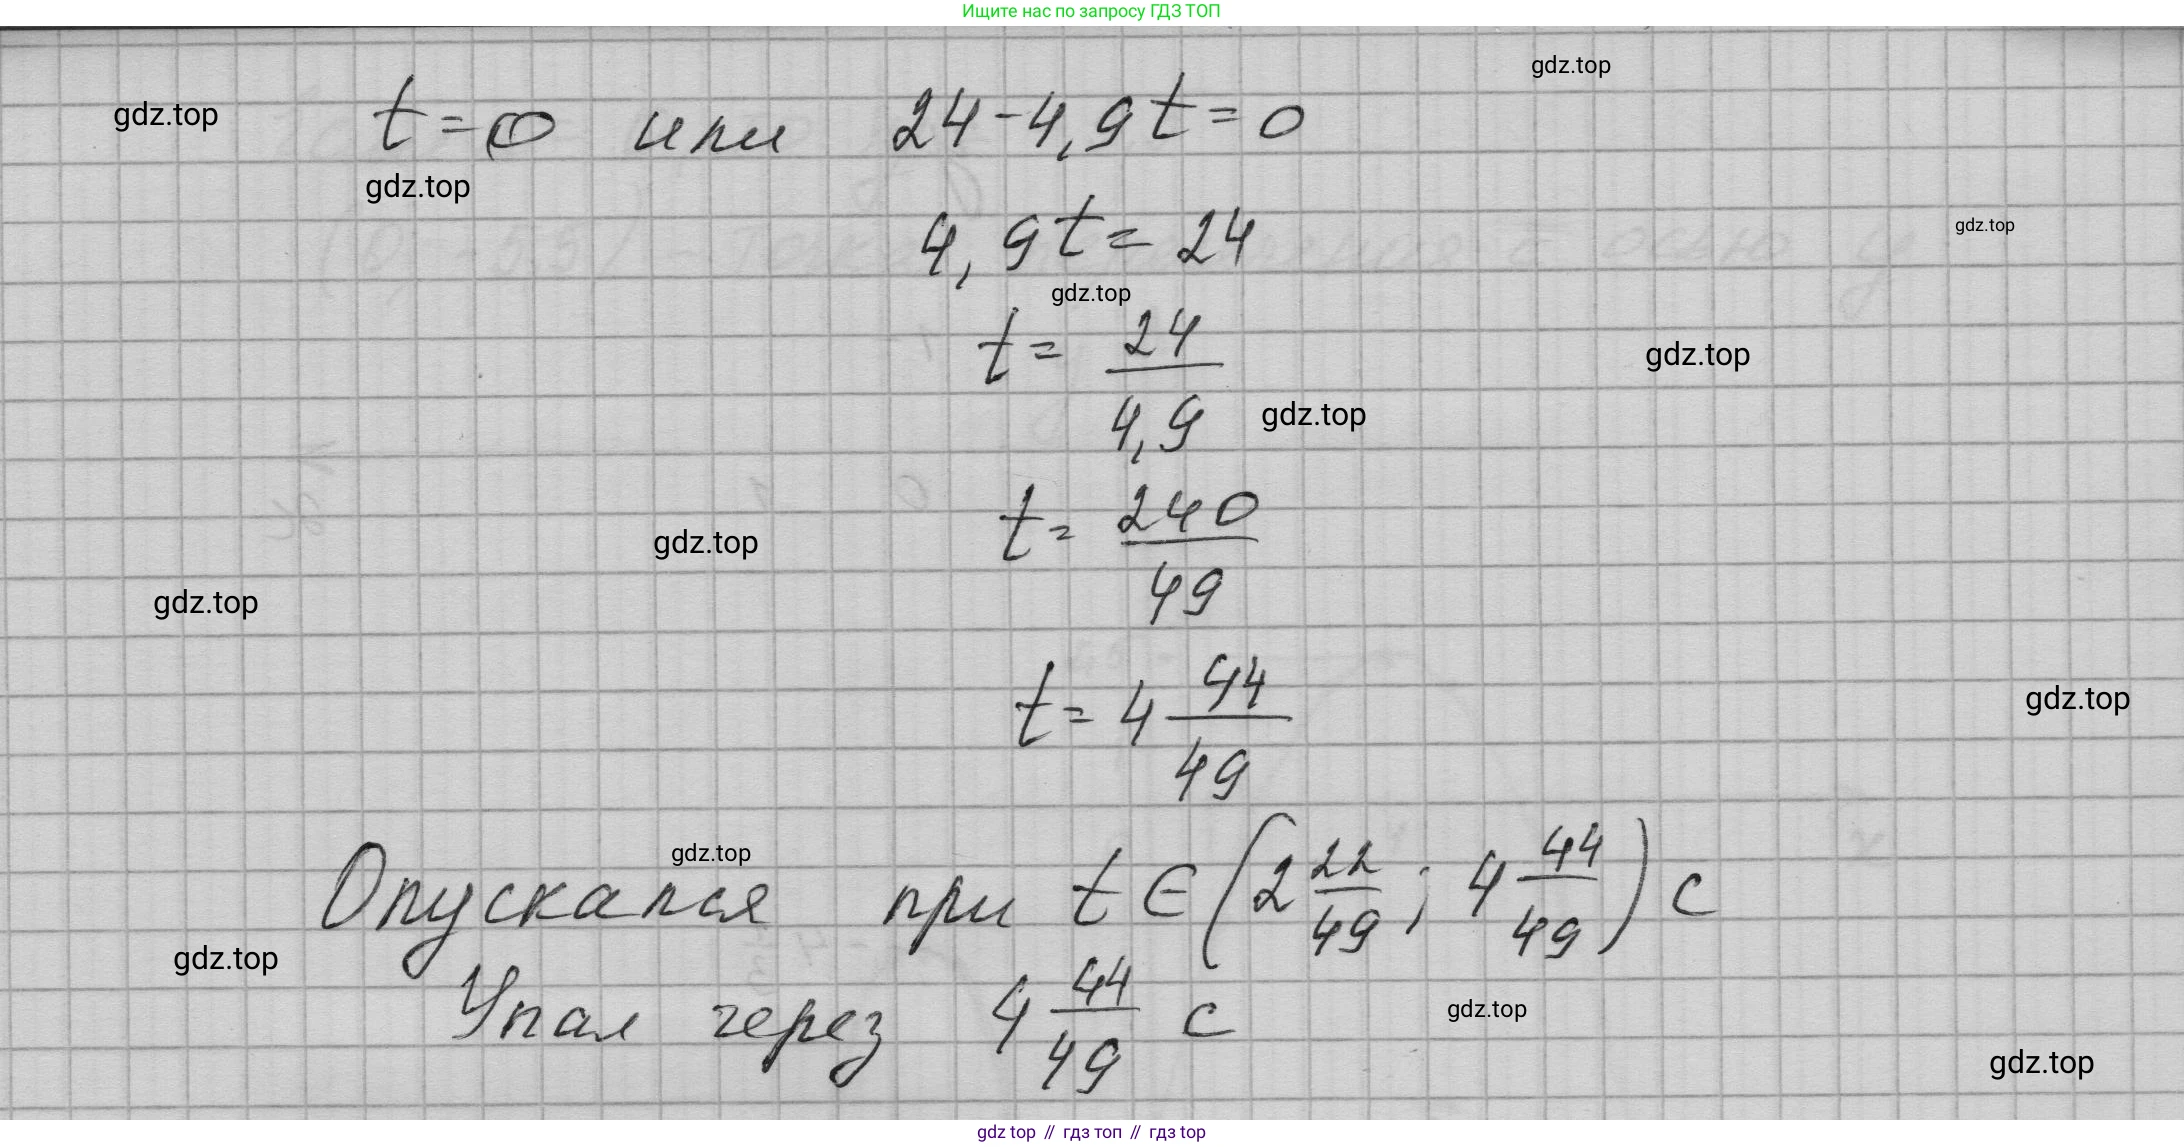 Ищите нас по запросу ГДЗ ТОП
gdz.top
gdz.top
t = 0 или 24 - 4,9t = 0
gdz.top
4,9t = 24
gdz.top
gdz.top
t = 24/4,9
gdz.top
gdz.top
t = 240/49
gdz.top
gdz.top
t = 4 44/49
gdz.top
gdz.top
Опускался при t ∈ (2 22/49; 4 44/49) с
gdz.top
Упал через 4 44/49 с
gdz.top
gdz.top
gdz top // гдз топ // гдз top